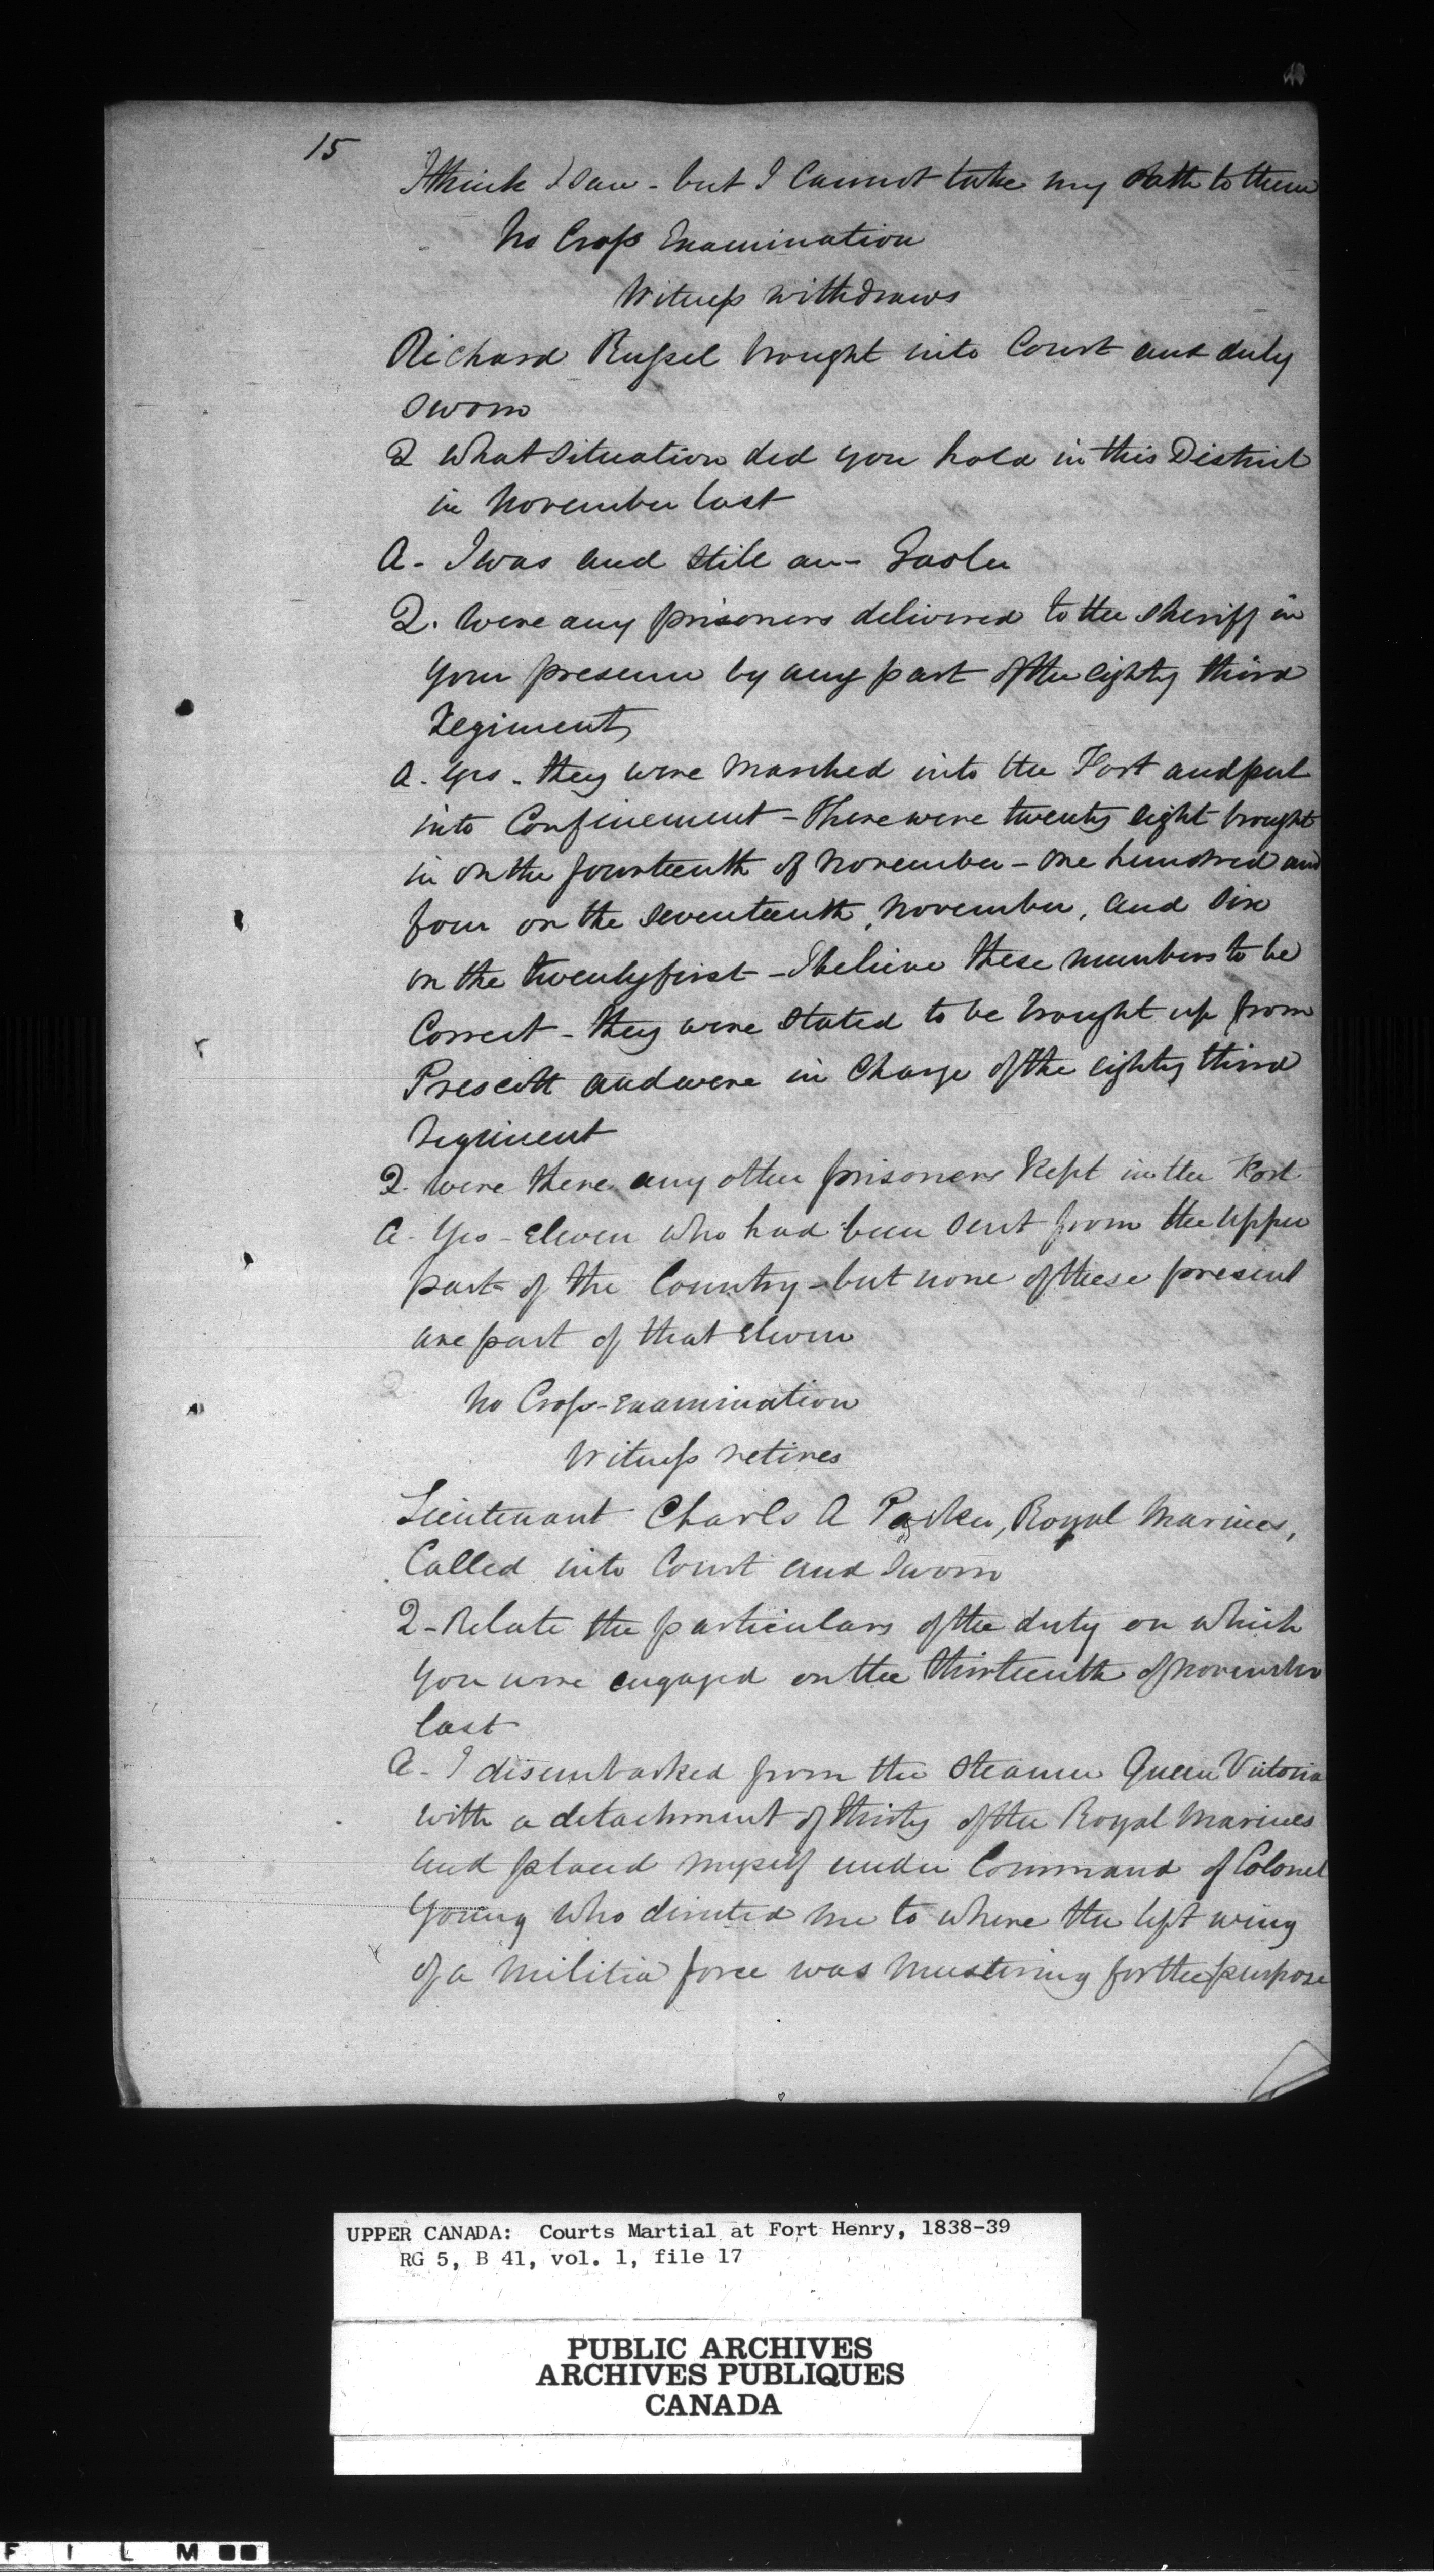 15
I think I saw - but I Cannot take my Oath to them
No Cross Examination
Witness withdraws
Richard Russel brought into Court and duly
sworn
Q What situation did you hold in this District
in November last
A - I was and still am - Gaoler
Q. Were any prisoners delivered to the Sheriff in
your presence by any part of the eighty third
Regiment
A - Yes - they were marched into the Fort and put
into Confinement - There were twenty eight brought
in on the fourteenth of November - One hundred and
four on the seventeenth, November, and six
on the twenty first - I believe these numbers to be
Correct - they were stated to be brought up from
Prescott and were in Charge of the eighty third
Regiment
Q. were there any other prisoners kept in the Fort
A - Yes - Eleven who had been sent from the upper
part of the Country - but none of these present
are part of that Eleven
No Cross-Examination
Witness retires
Lieutenant Charls A Parker, Royal Marines,
Called into Court and Sworn
Q - Relate the particulars of the duty on which
you were engaged on the thirteenth of November
last
A - I disembarked from the Steamer Queen Victoria
with a detachment of thirty of the Royal Marines
and placed myself under Command of Colonel
Young who directed me to where the left wing
of a Militia force was mustering for the purpose
UPPER CANADA: Courts Martial at Fort Henry, 1838-39
RG 5, B 41, vol. 1, file 17
PUBLIC ARCHIVES
ARCHIVES PUBLIQUES
CANADA
F I L M